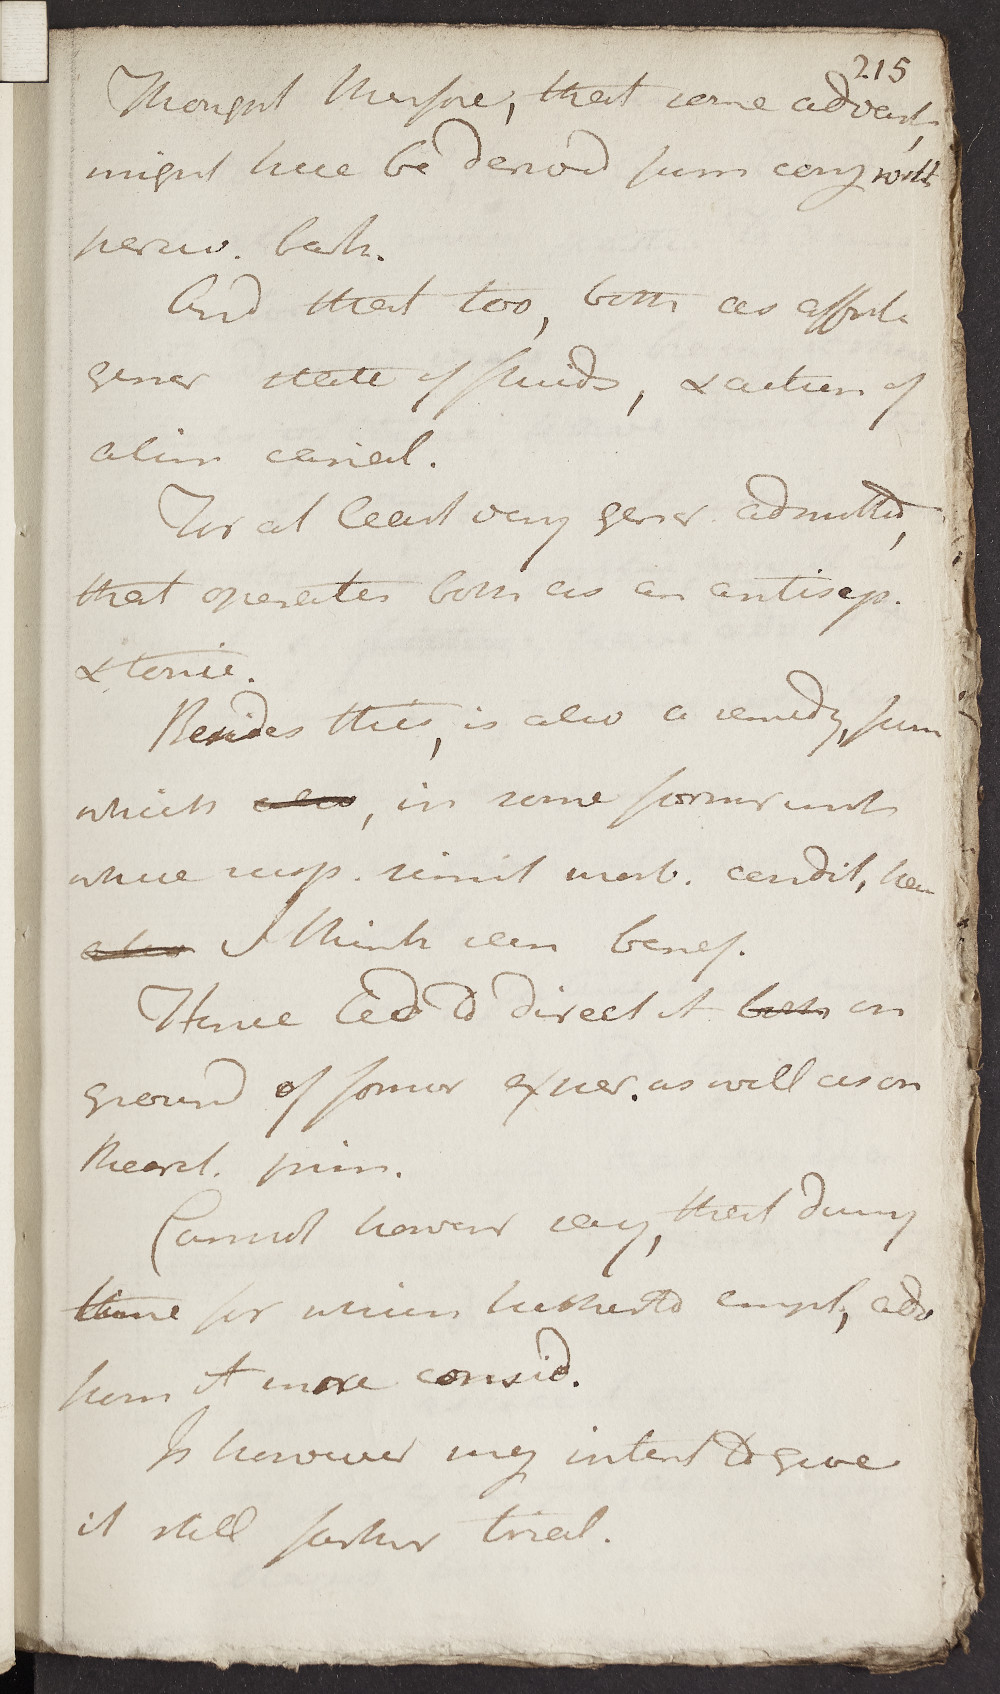 215
Thought therfore, that some advant,
might here be derived from cong with
peruv. bark.
And that too, both as affect.
gener state of fluids, & action of
alim canal.
For at least very gener. admitted,
that operates both as an antisep.
& tonic.
Besides this, is also a remedy, from
which also, in some former inst
where resp. simil morb. condit, have
also I think seen benef.
Hence led to direct it both on
ground of former exper. as well as on
theoret. prin.
Cannot however say, that during
time for which hitherto empl, adv
from it more consid.
Is however my intent to give
it still farther trial.